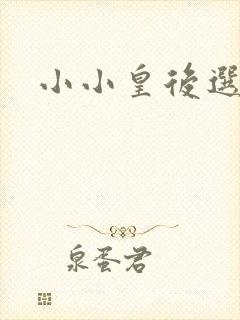 小小皇後選
泉蛋君